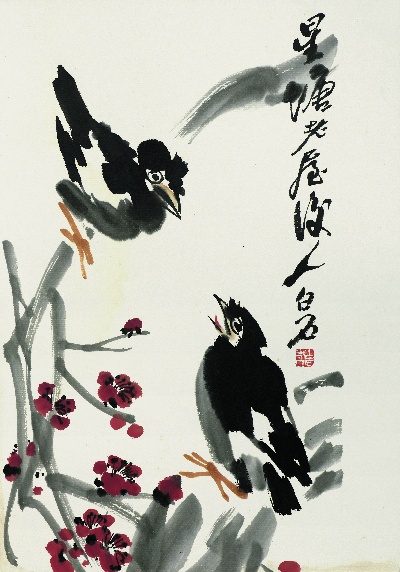 星塘老屋后人白石